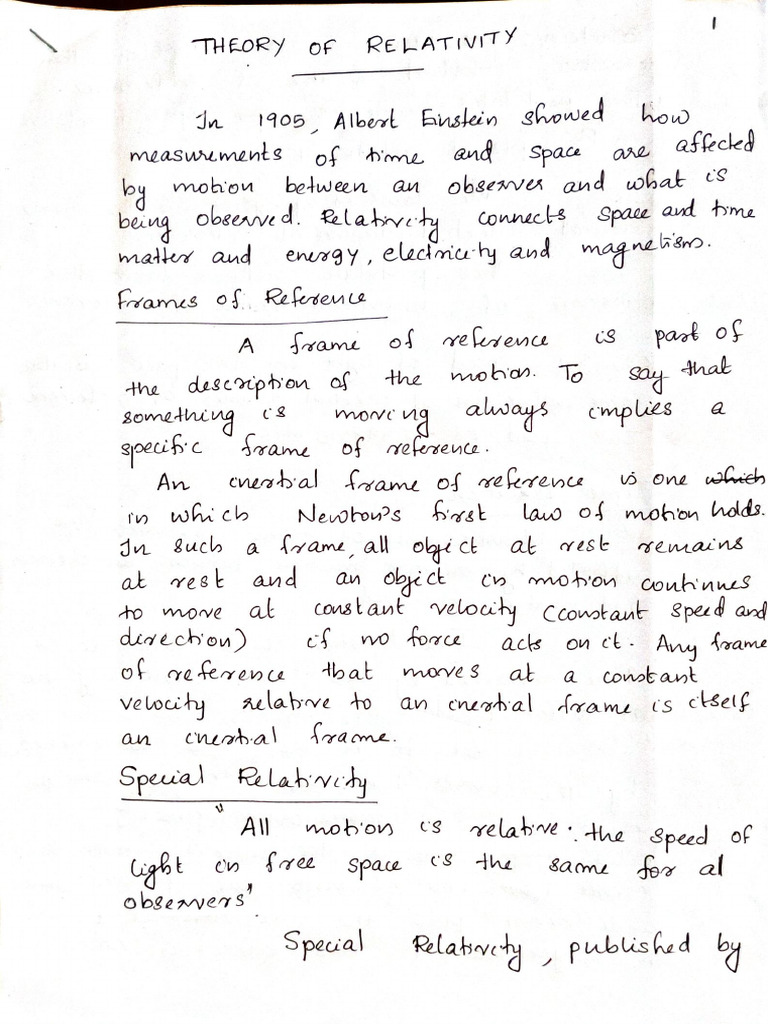 1
THEORY OF RELATIVITY
In 1905, Albert Einstein showed how
measurements of time and space are affected
by motion between an observer and what is
being observed. Relativity connects space and time
matter and energy, electricity and magnetism.
Frames of Reference
A frame of reference is part of
the description of the motion. To say that
something is moving always implies a
specific frame of reference.
An inertial frame of reference is one which
in which Newton's first law of motion holds.
In such a frame, all object at rest remains
at rest and an object in motion continues
to move at constant velocity (constant speed and
direction) if no force acts on it. Any frame
of reference that moves at a constant
velocity relative to an inertial frame is itself
an inertial frame.
Special Relativity
"All motion is relative. the speed of
light in free space is the same for al
observers".
Special Relativity, published by